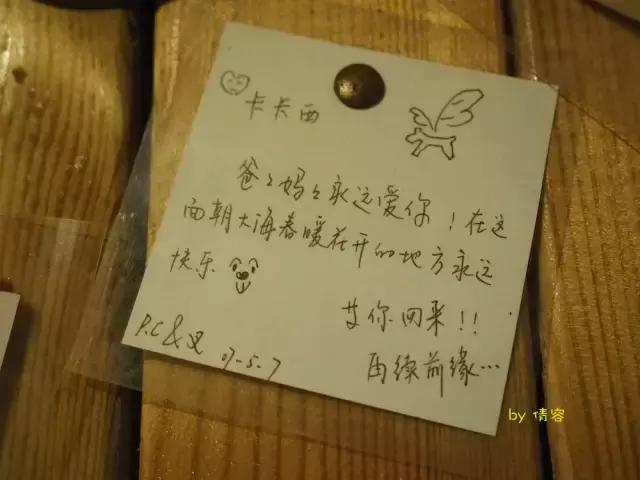 卡卡西
爸々妈々永远爱你!在这
面朝大海春暖花开的地方永远
快乐
等你回来!!
再续前缘…
P.C & 又 07-5.7
by 倩容